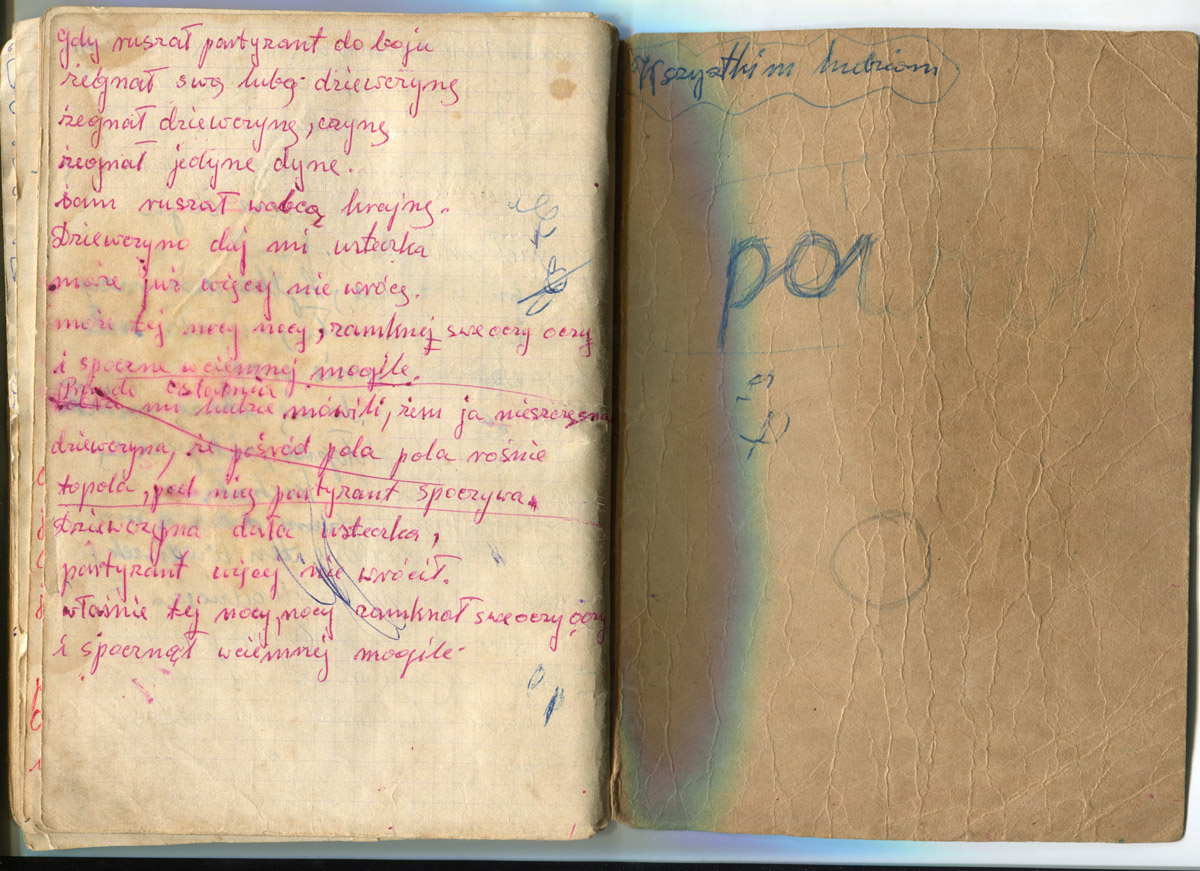 Gdy ruszał partyzant do boju
żegnał swą lubą dziewczynę
żegnał dziewczynę, czynę
żegnał jedyne dyne.
sam ruszał wobcą krajnę.
Dziewczyno daj mi usteczka
może już więcej nie wrócę.
może tej nocy nocy, zamknę swe oczy oczy
i spocznę wciemnej mogile.
ostatnia
mi ludzie mówili, żem ja nieszczęsna
dziewczyna, że pośród pola pola rośnie
topola, pod nią partyzant spoczywa.
Dziewczyna dała usteczka,
partyzant więcej nie wrócił.
właśnie tej nocy, nocy zamknął swe oczy oczy
i spoczął wciemnej mogile.
po